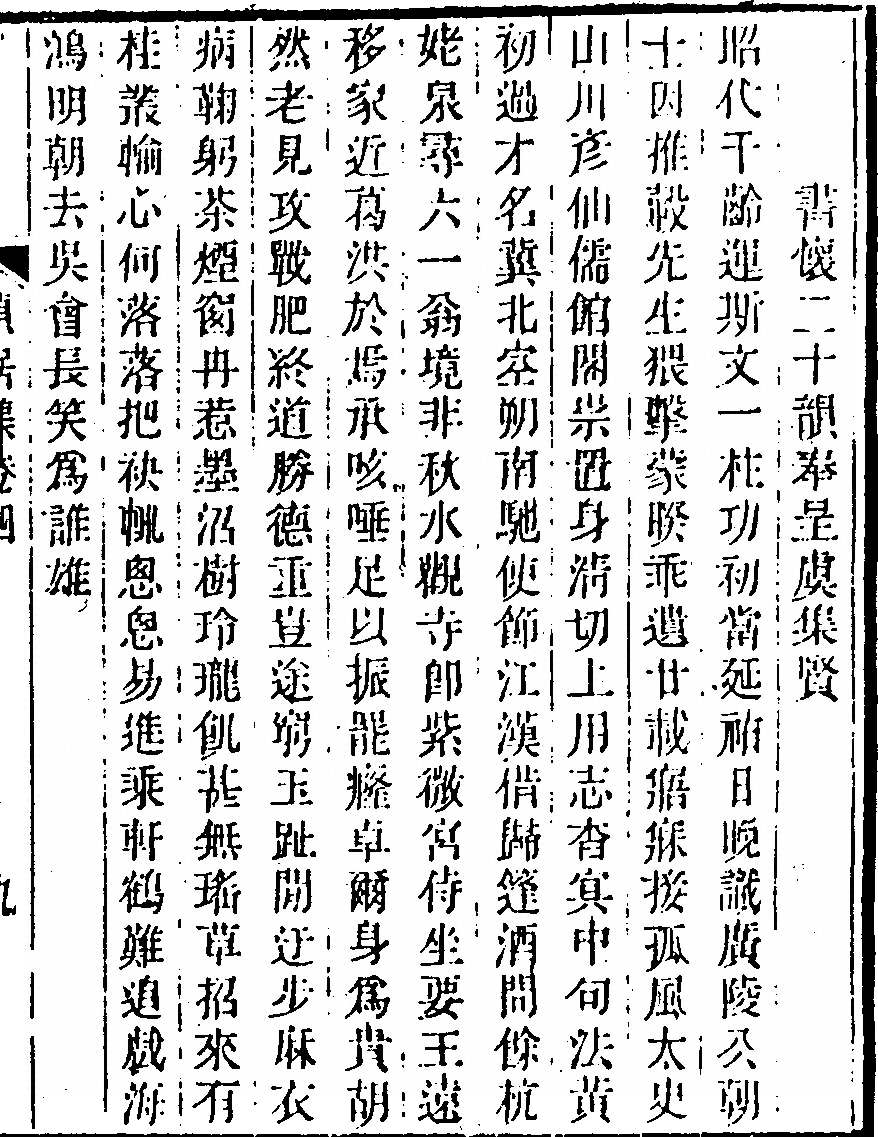 書懷二十韻奉呈虞集賢
昭代千齡運斯文一柱功初當延祐日晚識廣陵公朝
士因推轂先生猥擊蒙睽乖遺廿載寤寐接孤風太史
山川彦仙儒館閣崇置身淸切上用志杳冥中句法黃
初過才名冀北空朔南馳使節江漢偕歸篷酒問餘杭
姥泉尋六一翁境非秋水觀寺卽紫微宮侍坐要王遠
移家近葛洪於焉承咳唾足以振龍癃卓爾身爲貴胡
然老見攻戰肥終道勝德重豈途窮玉趾閒迂步麻衣
病鞠躬茶煙窗冉惹墨沼樹玲瓏飢甚無瑤草招來有
桂叢輸心何落落把袂輒悤悤易進乘軒鶴難追戲海
鴻明朝去吳會長笑爲誰雄
貞居集卷四
九